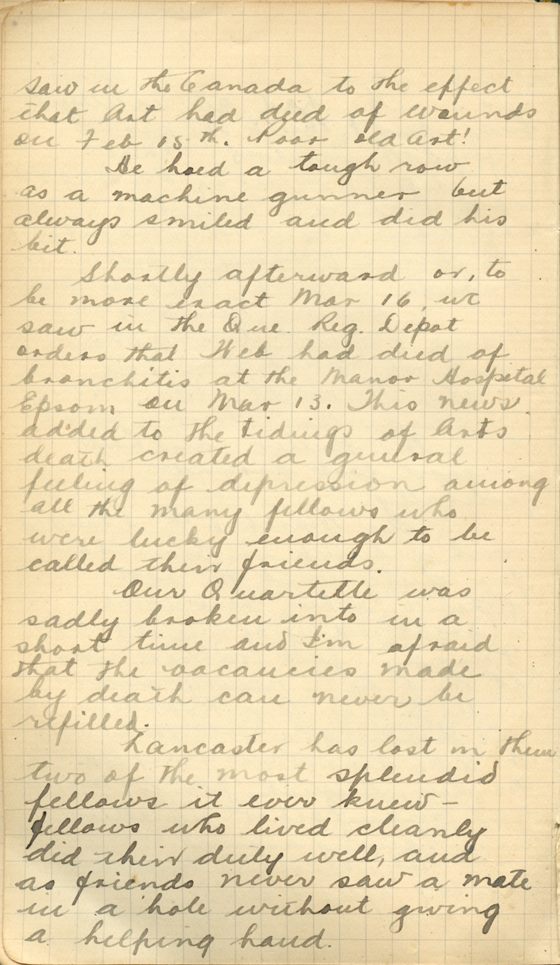 saw in the Canada to the effect
that Art had died of wounds
on Feb 15th. Poor old Art!
He hoed a tough row
as a machine gunner but
always smiled and did his
bit.
Shortly afterward or, to
be more exact Mar 16, we
saw in the Que. Reg. Depot
orders that Web had died of
bronchitis at the Manor Hospital
Epsom on Mar 13. This news
added to the tidings of Arts
death created a general
feeling of depression among
all the many fellows who
were lucky enough to be
called their friends.
Our Quartette was
sadly broken into in a
short time and I'm afraid
that the vacancies made
by death can never be
refilled.
Lancaster has lost in them
two of the most splendid
fellows it ever knew—
fellows who lived cleanly
did their duty well, and
as friends never saw a mate
in a hole without giving
a helping hand.